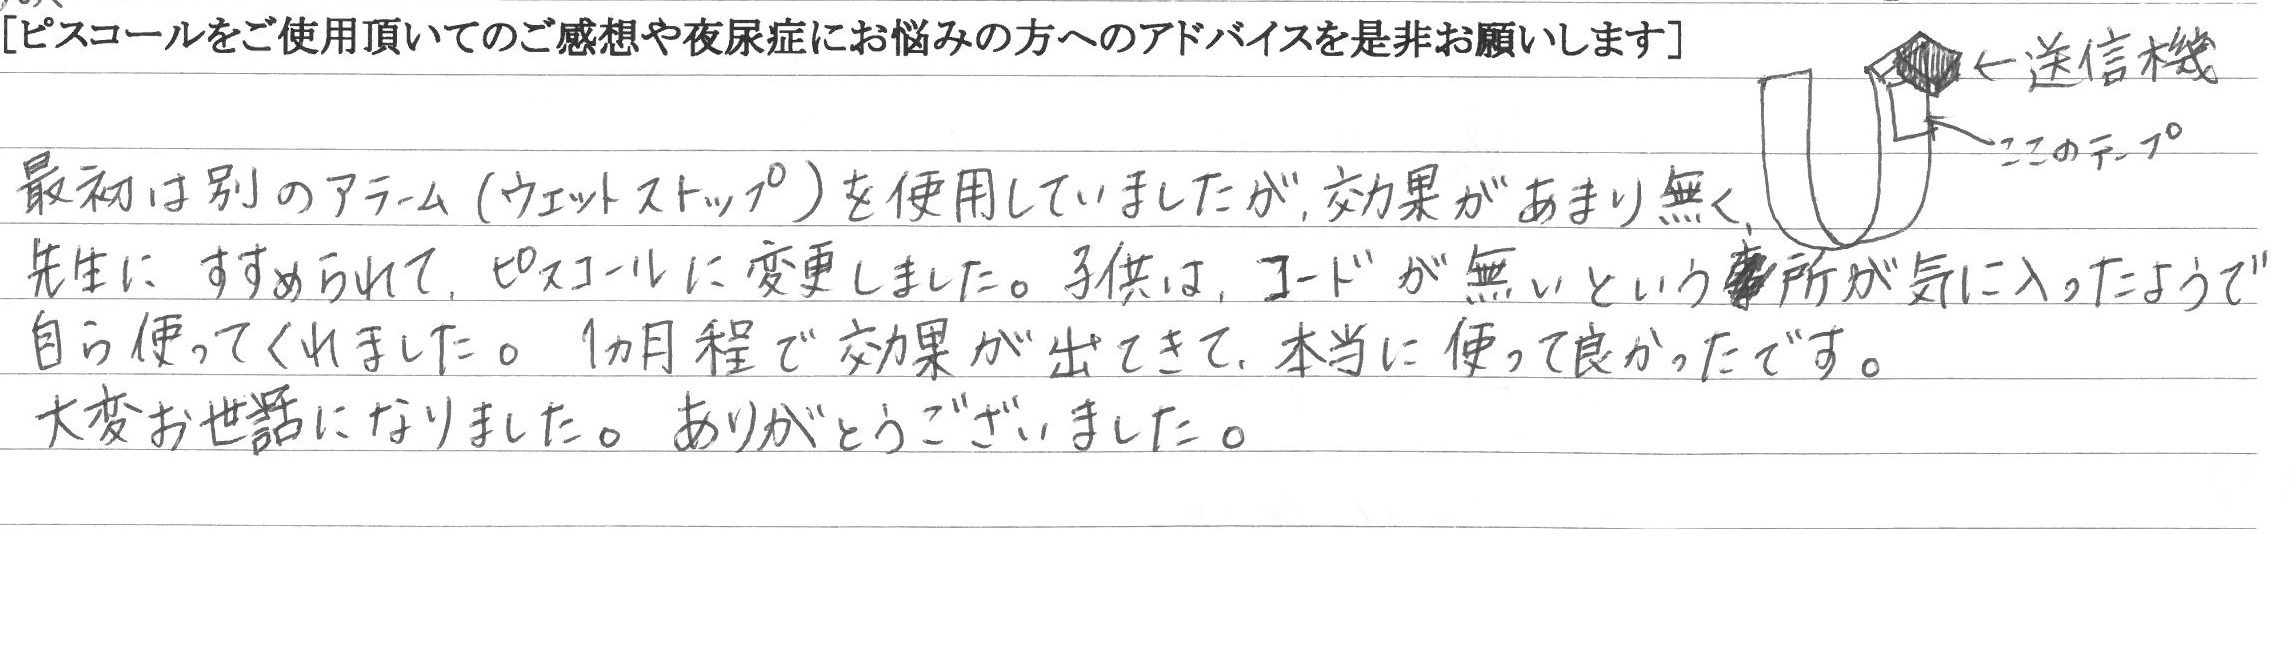 [ピスコールをご使用頂いてのご感想や夜尿症にお悩みの方へのアドバイスを是非お願いします]
←送信機
ここのテープ
最初は別のアラーム(ウェットストップ)を使用していましたが、効果があまり無く、
先生にすすめられて、ピスコールに変更しました。子供は、コードが無いという所が気に入ったようで
自ら使ってくれました。1ヵ月程で効果が出てきて、本当に使って良かったです。
大変お世話になりました。ありがとうございました。